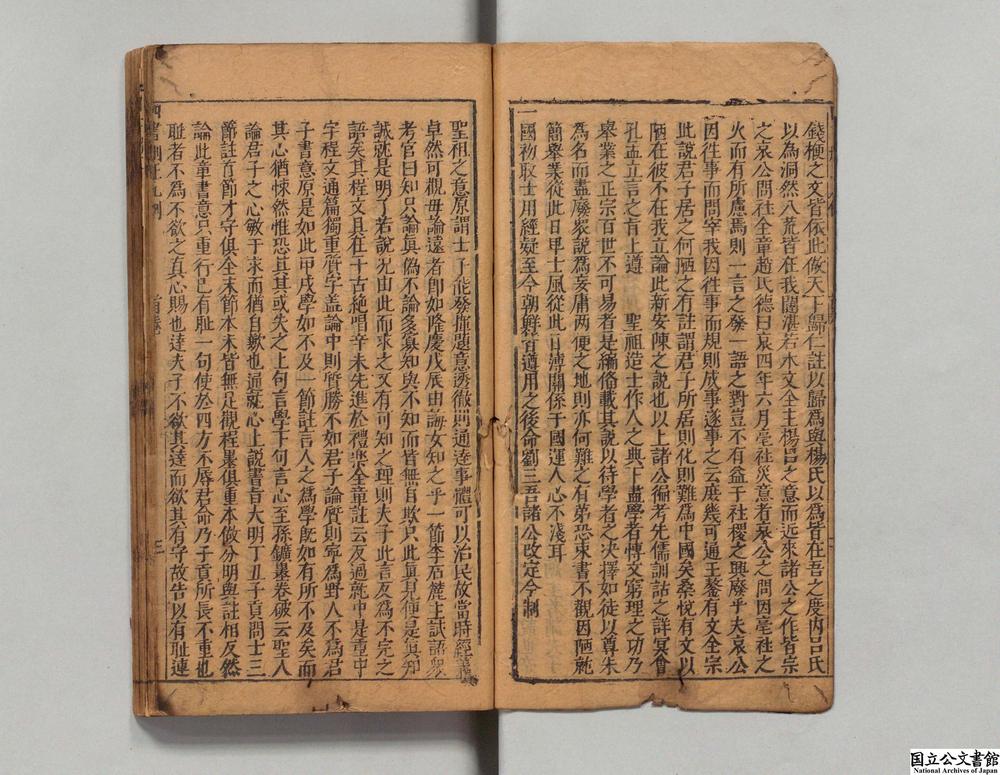 錢梗之文皆依此做天下歸仁註以歸爲與楊氏以爲皆在吾之度內呂氏
以爲洞然八荒皆在我闥湛若木文全主楊呂之意而近來諸公之作皆宗
之哀公問社全章趙氏德曰哀四年六月亳社災意者哀公之問因亳社之
火而有所慮焉則一言之發一語之對豈不有益于社稷之興廢乎夫哀公
因往事而問宰我因往事而規則成事遂事之云庶幾可通王鏊有文全宗
此說君子居之何陋之有註謂君子所居則化則難爲中國矣桑悅有文以
陋在彼不在我立論此新安陳之說也以上諸公徧考先儒訓詁之詳冥會
孔孟立言之旨上遵 聖祖造士作人之典下盡學者博文窮理之功乃
舉業之正宗百世不可易者是編俻載其說以待學者之决擇如徒以尊朱
爲名而盡廢衆說爲妄庸两便之地則亦何難之有第恐束書不觀因陋就
簡舉業從此日卑士風從此日溥關係于國運人心不淺耳
一國初取士用經疑至今朝鮮猶遵用之後命劉三吾諸公改定今制
聖祖之意原謂士子能發揮題意透徹則通逹事體可以治民故當時經義
卓然可觀毋論遠者卽如隆慶戊辰由誨女知之乎一節李石麓主試語衆
考官曰知只論眞偽不論多寡知與不知而皆無自欺只此眞見便是眞知
誠就是明了若說况由此而求之又有可知之理則夫子此言反爲不完之
語矣其程文具在千古絶唱辛未先進於禮樂全章註云反過就中是重中
字程文通篇獨重質字盖論中則質勝不如君子論質則寧爲野人不爲君
子書意原是如此甲戌學如不及一節註言人之爲學旣如有所不及矣而
其心猶悚然惟恐其或失之上句言學下句言心至孫鑛墨卷破云聖人
論君子之心敏于求而猶自歉也逼就心上說書旨大明丁丑子貢問士三
節註首節才守俱全末節本末皆無足觀程墨俱重本做分明與註相反然
論此章書意只重行己有耻一句使於四方不辱君命乃子貢所長不重也
耻者不爲不欲之眞心賜也逹夫子不欲其逹而欲其有守故告以有耻連
國立公文書館
National Archives of Japan